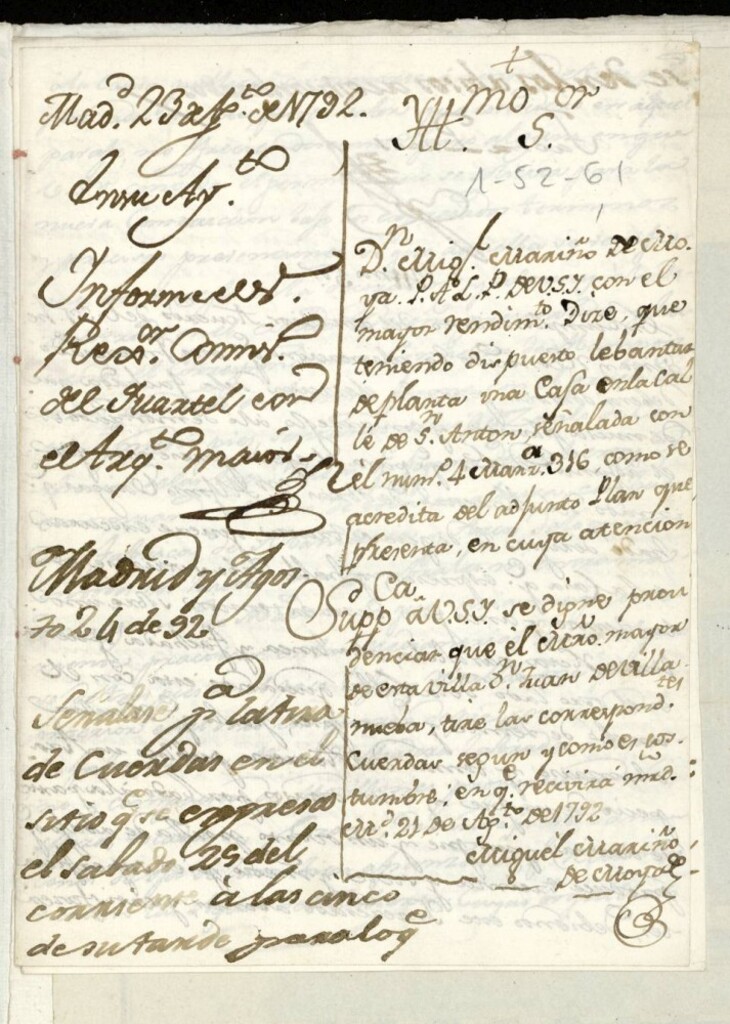 Mad.d 23 Ag.to de 1792.
En su Ay.to
Informe el S.r
Rex.or Comis.o
del Quartel con
el Arq.to maior
Madrid y Agos-
to 24 de 92
Señalase p.a la tira
de Cuerdas en el
sitio q.e se expresa
el sabado 25 del
corriente à las cinco
de su tarde para lo q.e
+
Yll.mo S.or
1-52-61
D.n Mig.l Mariño de Mo-
ya. P. A L. P. De V.S.Y. con el
mayor rendim.to Dize, que
teniendo dispuesto lebantar
de planta una Casa en la Cal
le de S.n Anton, señalada con
el num.o 4 Manz.a 316, como se
acredita del adjunto Plan que
presenta, en cuya atencion
Supp.ca à V.S.Y. se digne provi
denciar que el Mro. mayor
de esta villa D.n Juan de Villa-
nueba, tire las correspond.tes
Cuerdas segun y como es cos-
tumbre; en q.e recivirá mrd.
M.d 21 de Ag.to de 1792
Miguel Mariño
de Moya